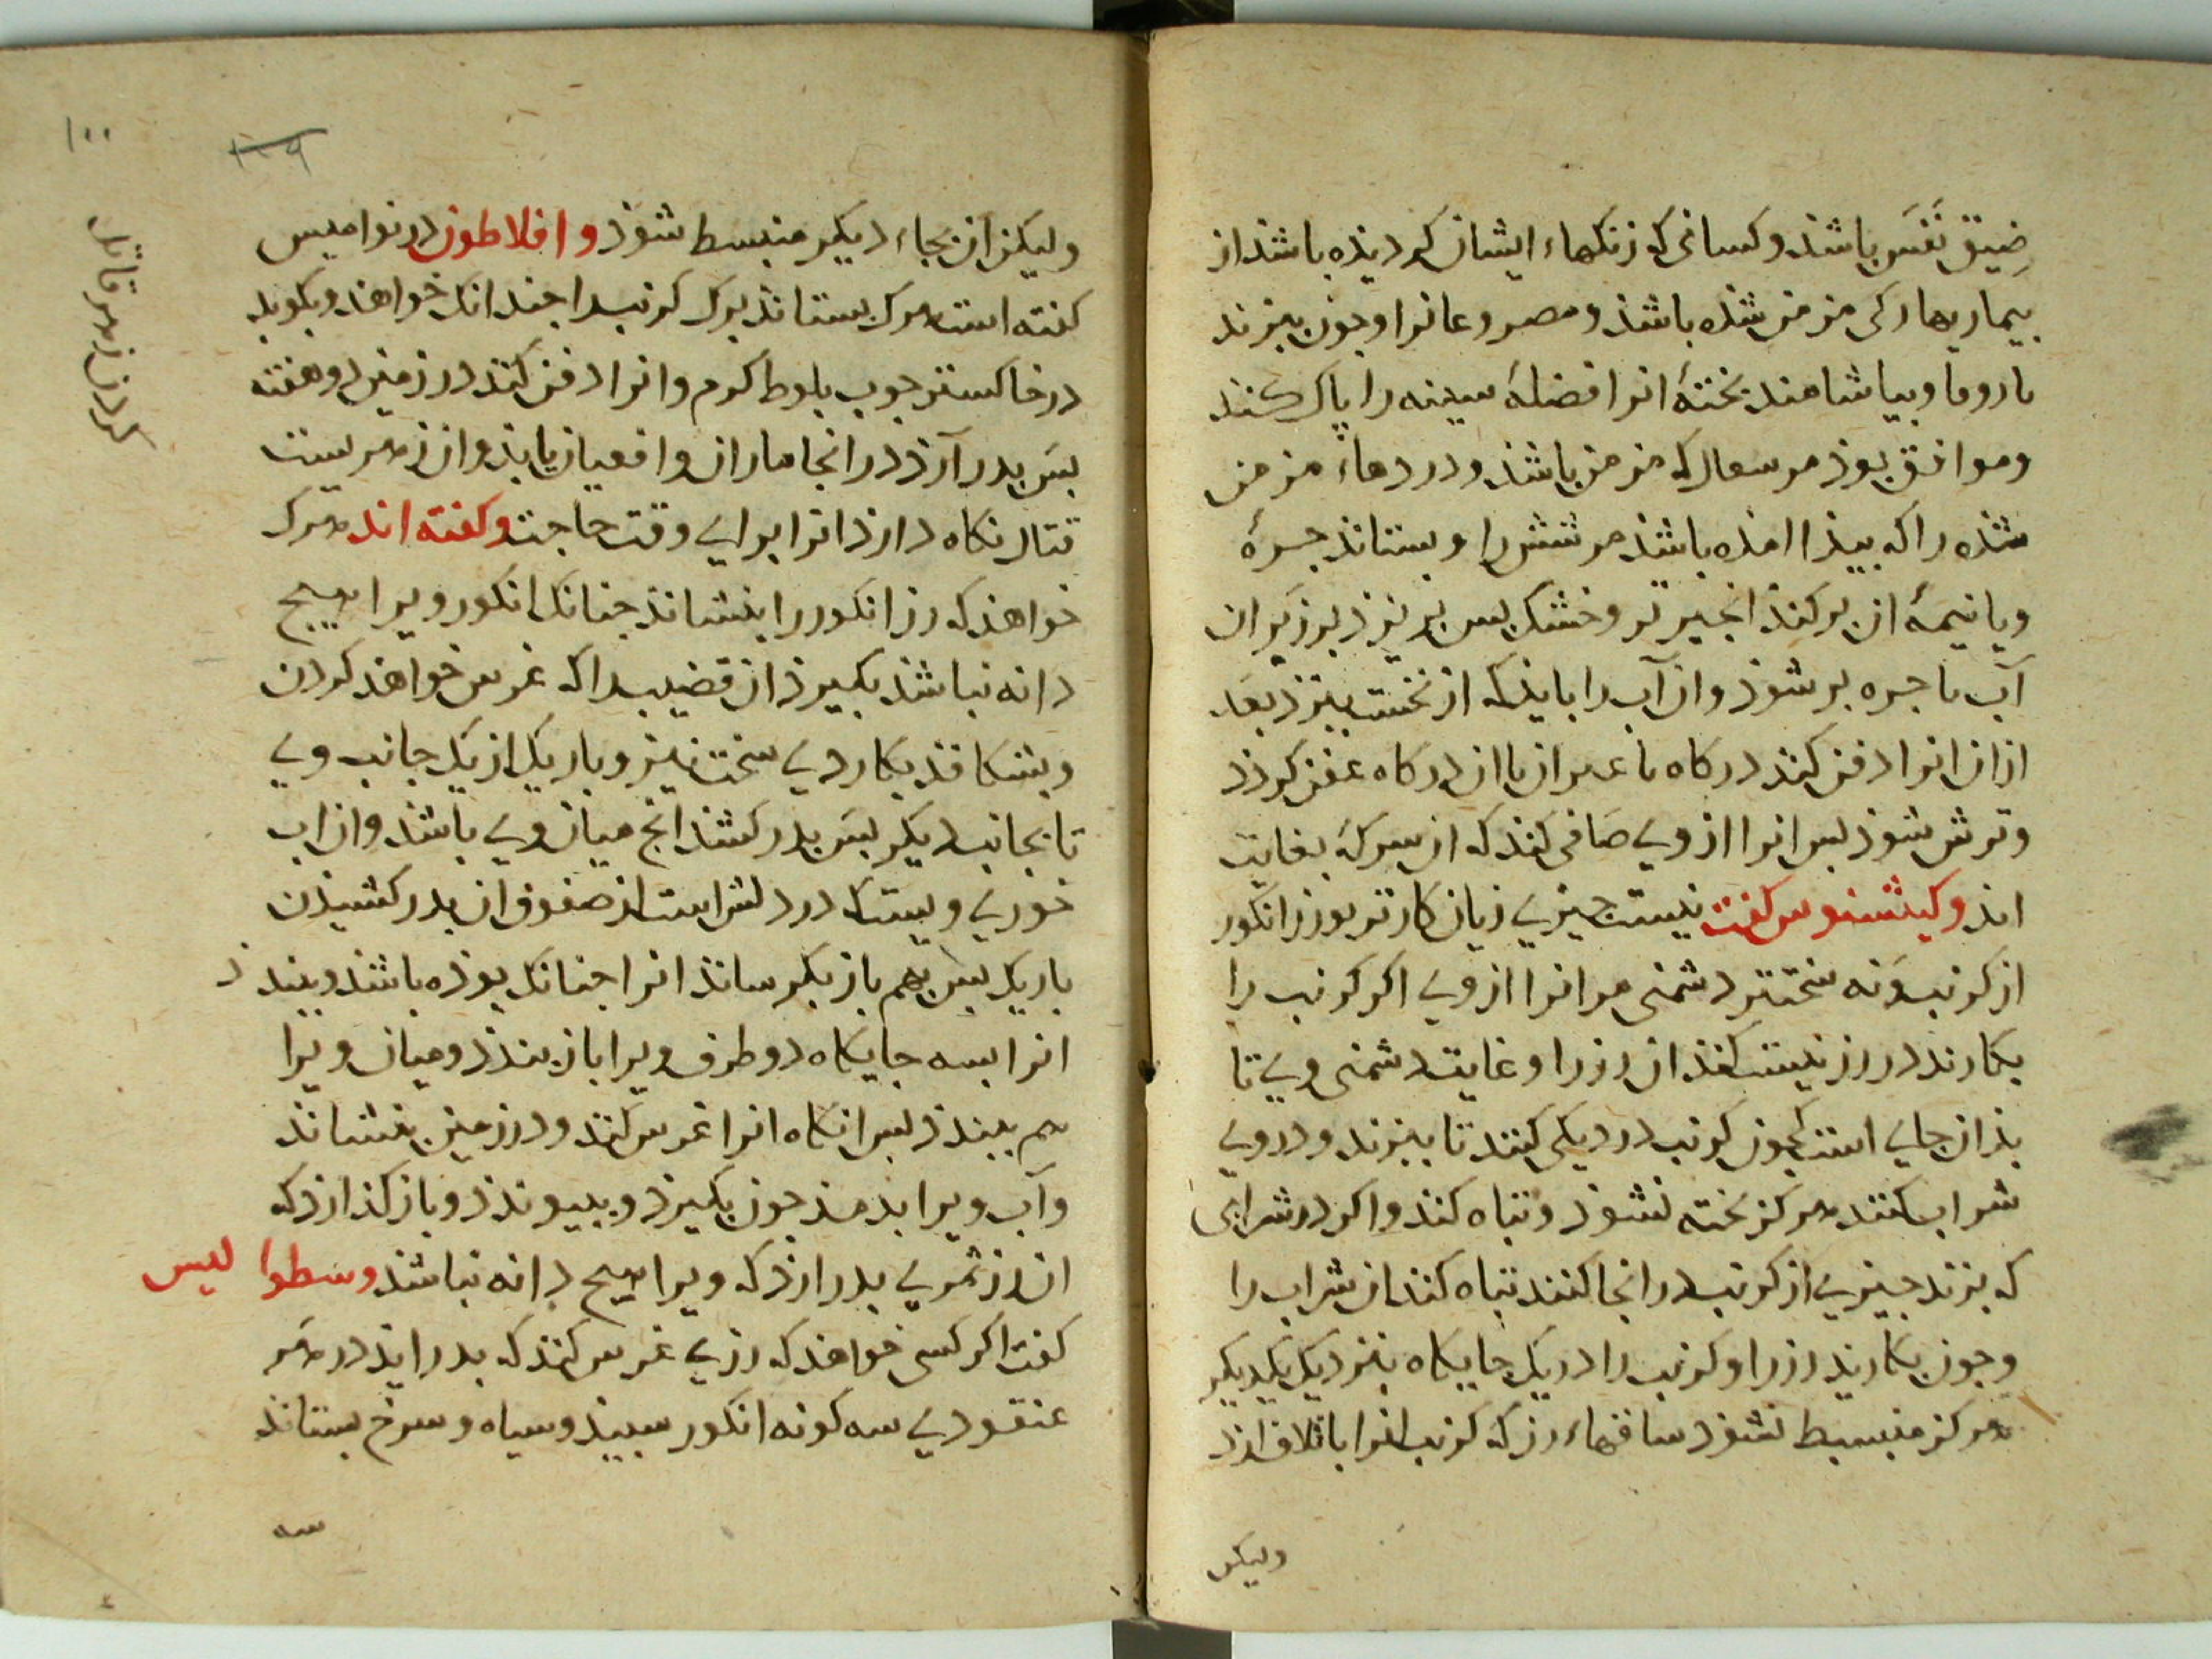 ضیق نَفَس باشند و کسانی که زنکهاء ایشان کردیذه باشند از
بیماریها کی مزمن شذه باشذ و مصروعانرا و جون ببزند
با روفا و بیاشامند بختهٔ انرا فضلهٔ سینه را باک کند
و موافق بوذ مر سعال که مزمن باشذ و دردهاء مزمن
شذه را که بیذا امذه باشذ مر شش را و بستانذ جره
و یا نیمهٔ ان بر کنذ انجیر تر و خشک بس بریزذ بر زیر ان
آب تا جره بر شوذ و ان آب را بایذ که از نخست ببزذ بعد
از ان انرا دفن کند در کاه تا عبر ان یا ان در کاه عفن کردذ
و ترش شوذ بس انرا از وی صافی کند که ان سرکهٔ بغایت
اند و کیشنوس کفت نیست جیزی زیان کارتر بوزز انکور
از کرنب و نه سختتر دشمنی مر انرا از وی اکر کرنب را
بکارند در رز نیست کنذ ان رز را و غایت دشمنی وی تا
بذان جای است کجون کرنب در دیکی کنند تا ببزند و در وی
شراب کنند هرکز بخته نشوذ و تباه کند و اکر در شرابی
که بزند جیزی از کرنب در انجا کنند تباه کند ان شراب را
و جون بکارید رز را و کرنب را در یک جایکاه بنزدیک یکدیکر
هرکز منبسط نشوذ ساقهاء رز که کرنب انرا باتلاف ارذ
ولیکن
۱۰۰
ولیکن ان بجاء دیکر منبسط شوذ و افلاطون در نوامیس
کفته است هرک بستانذ برک کرنب را جندانک خواهذ و بکوبد
در خاکستر جوب بلوط کرم و انرا دفن کند در زمین دو هفته
بس بدر آرذ در انجا ماران و افعیان یابذ و ان زهریست
قتال نکاه دارذ انرا برای وقت حاجت و کفته اند هرک
خواهذ که رز انکور را بنشانذ جنانک انکور ویرا هیج
دانه نباشذ بکیرذ ان قضیب را که غرس خواهذ کردن
و بشکافذ بکاردی سخت تیز و باریک از یک جانب وی
تا بجانب دیکر بس بدر کشذ انج میان وی باشذ و ان اب
خوری ویست که در دلش است از صفوف ان بدر کشیذن
باریک بس بهم باز یکر سانذ انرا جنانک بوذه باشذ و ببندذ
انرا بسه جایکاه دو طرف ویرا باز بندذ و میان ویرا
هم ببندذ بس انکاه انرا غرس کند و در زمین بنشانذ
و آب ویرا بدهذ جون بکیرذ و ببیوندذ و باز کذارذ که
ان رز ثمری بدر ارذ که ویرا هیج دانه نباشذ و سطوا لیس
کفت اکر کسی خواهذ که رزی غرس کند که بدر ایذ در هر
عنقودی سه کونه انکور سبیذ و سیاه و سرخ بستانذ
سه
کردن زهر قاتل